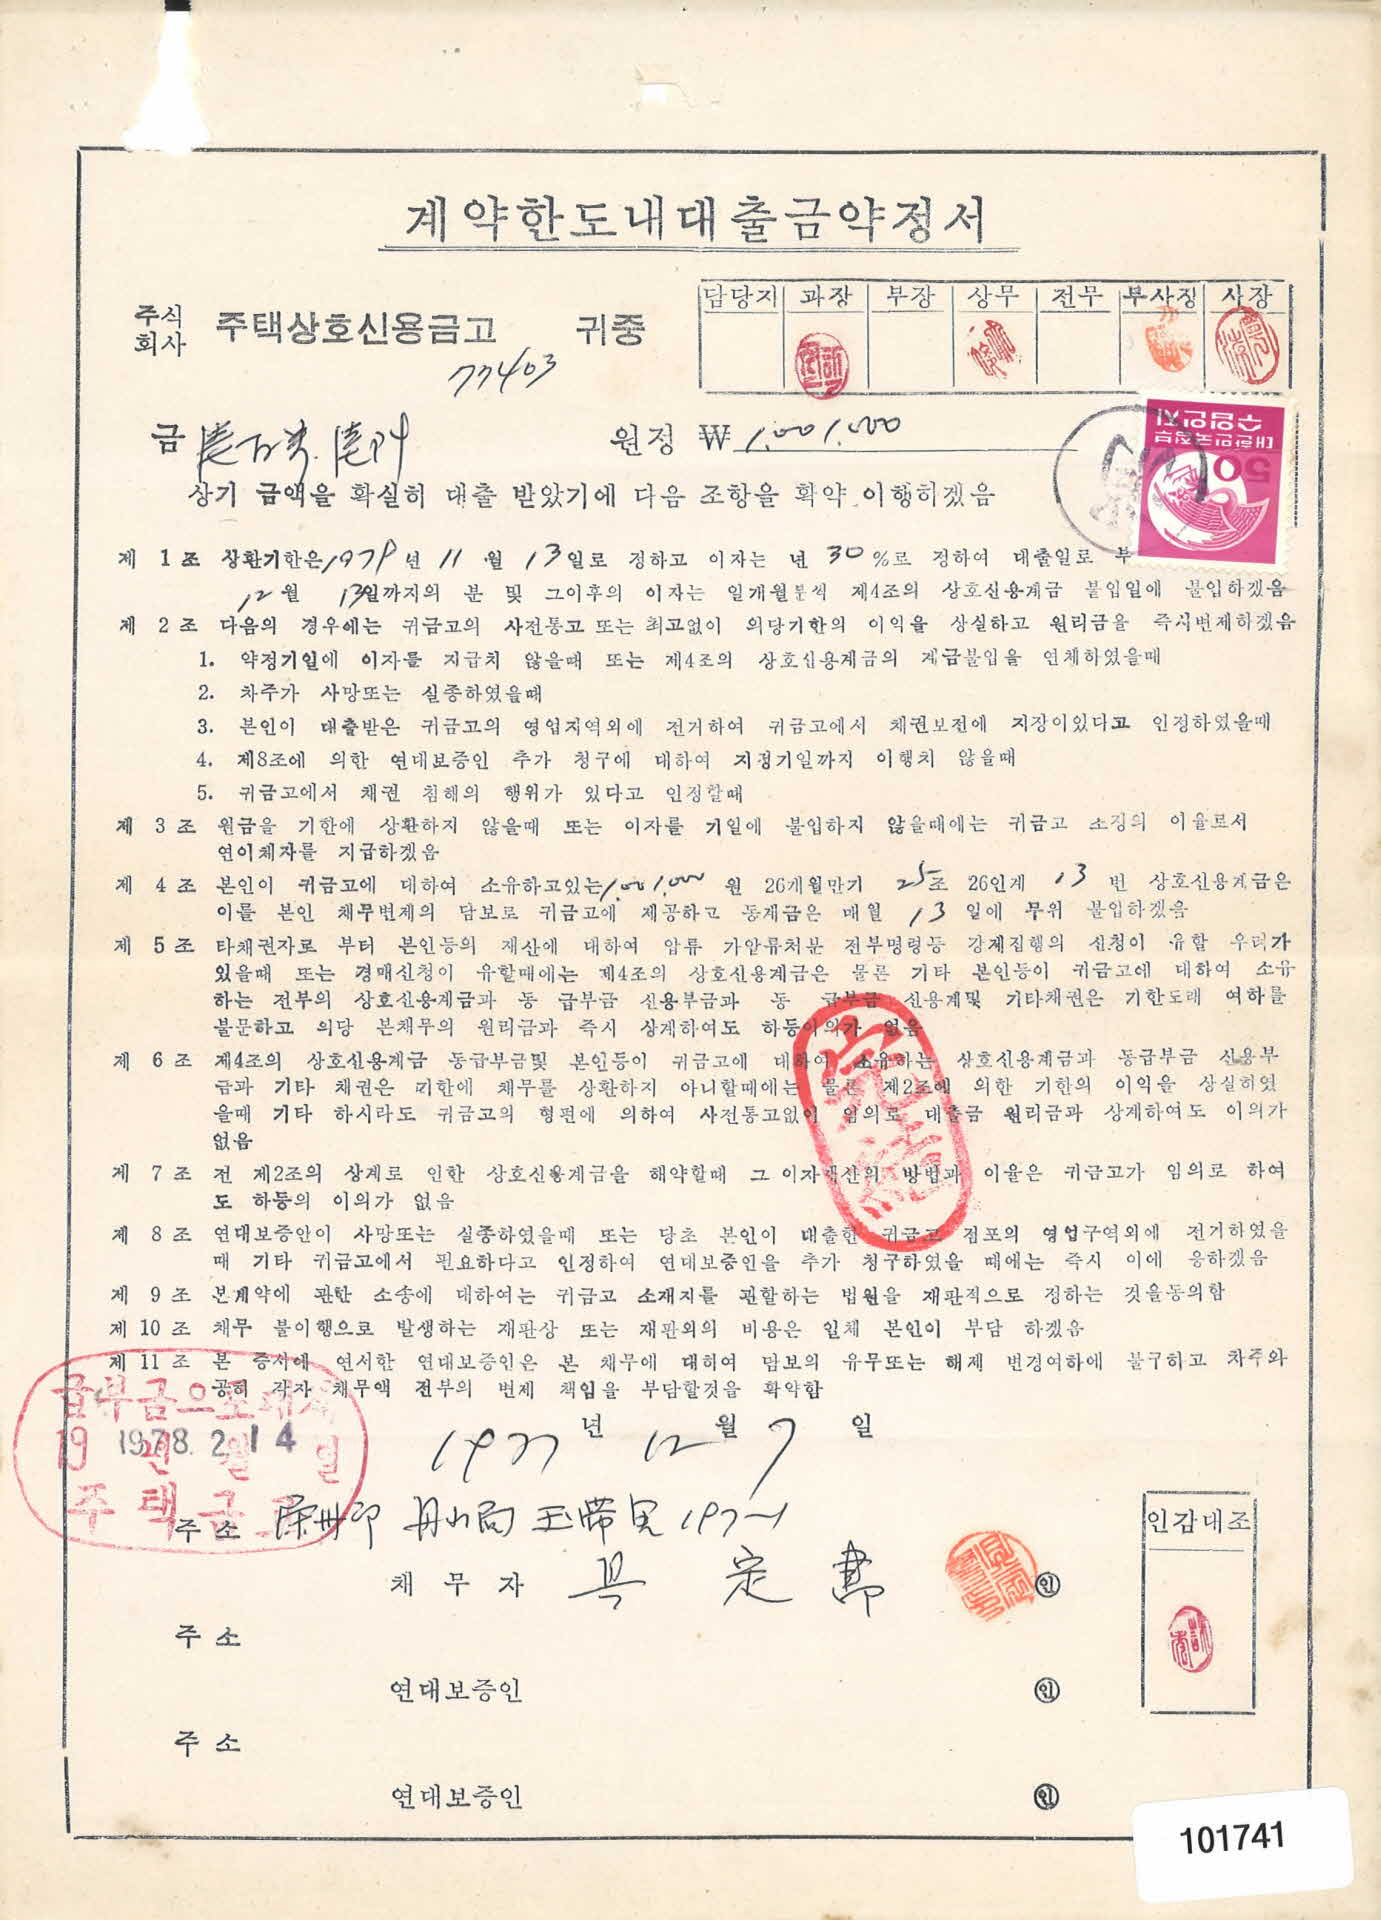 계약한도내대출금약정서
담당자 과장 부장 상무 전무 부사장 사장
주식회사 주택상호신용금고 귀중
77403
금 원정 ₩ 1,001,000
대한민국정부 수입인지 50
상기 금액을 확실히 대출 받았기에 다음 조항을 확약 이행하겠음
제 1 조 상환기한은 1979년 11월 13일로 정하고 이자는 년 30%로 정하여 대출일로 부
12월 13일까지의 분 및 그이후의 이자는 일개월분씩 제4조의 상호신용계금 불입일에 불입하겠음
제 2 조 다음의 경우에는 귀금고의 사전통고 또는 최고없이 의당기한의 이익을 상실하고 원리금을 즉시변제하겠음
1. 약정기일에 이자를 지급치 않을때 또는 제4조의 상호신용계금의 계금불입을 연체하였을때
2. 차주가 사망또는 실종하였을때
3. 본인이 대출받은 귀금고의 영업지역외에 전거하여 귀금고에서 채권보전에 지장이있다고 인정하였을때
4. 제8조에 의한 연대보증인 추가 청구에 대하여 지정기일까지 이행치 않을때
5. 귀금고에서 채권 침해의 행위가 있다고 인정할때
제 3 조 원금을 기한에 상환하지 않을때 또는 이자를 기일에 불입하지 않을때에는 귀금고 소정의 이율로서
연이체자를 지급하겠음
제 4 조 본인이 귀금고에 대하여 소유하고있는 1,001,000 원 26개월만기 25조 26인계 13 번 상호신용계금은
이를 본인 채무변제의 담보로 귀금고에 제공하고 동계금은 매월 13 일에 무위 불입하겠음
제 5 조 타채권자로 부터 본인등의 재산에 대하여 압류 가압류처분 전부명령등 강제집행의 신청이 유할 우려가
있을때 또는 경매신청이 유할때에는 제4조의 상호신용계금은 물론 기타 본인등이 귀금고에 대하여 소유
하는 전부의 상호신용계금과 동 급부금 신용부금과 동 급부금 신용계및 기타채권은 기한도래 여하를
불문하고 의당 본채무의 원리금과 즉시 상계하여도 하등이의가 없음
제 6 조 제4조의 상호신용계금 동급부금및 본인등이 귀금고에 대하여 소유하는 상호신용계금과 동급부금 신용부
금과 기타 채권은 기한에 채무를 상환하지 아니할때에는 물론 제2조에 의한 기한의 이익을 상실하였
을때 기타 하시라도 귀금고의 형편에 의하여 사전통고없이 임의로 대출금 원리금과 상계하여도 이의가
없음
제 7 조 전 제2조의 상계로 인한 상호신용계금을 해약할때 그 이자계산의 방법과 이율은 귀금고가 임의로 하여
도 하등의 이의가 없음
제 8 조 연대보증안이 사망또는 실종하였을때 또는 당초 본인이 대출한 귀금고 점포의 영업구역외에 전거하였을
때 기타 귀금고에서 필요하다고 인정하여 연대보증인을 추가 청구하였을 때에는 즉시 이에 응하겠음
제 9 조 본계약에 관한 소송에 대하여는 귀금고 소재지를 관할하는 법원을 재판적으로 정하는 것을동의함
제 10 조 채무 불이행으로 발생하는 재판상 또는 재판외의 비용은 일체 본인이 부담 하겠음
제 11 조 본 증서에 연서한 연대보증인은 본 채무에 대하여 담보의 유무또는 해제 변경여하에 불구하고 차주와
공히 각자 채무액 전부의 변제 책임을 부담할것을 확약함
급부금으로대체
19 년 월 일
1978. 2. 14
주택금고
1977 년 12 월 7 일
주 소 197-1
채 무 자 ㊞
인감대조
주 소
연대보증인 ㊞
주 소
연대보증인 ㊞
101741